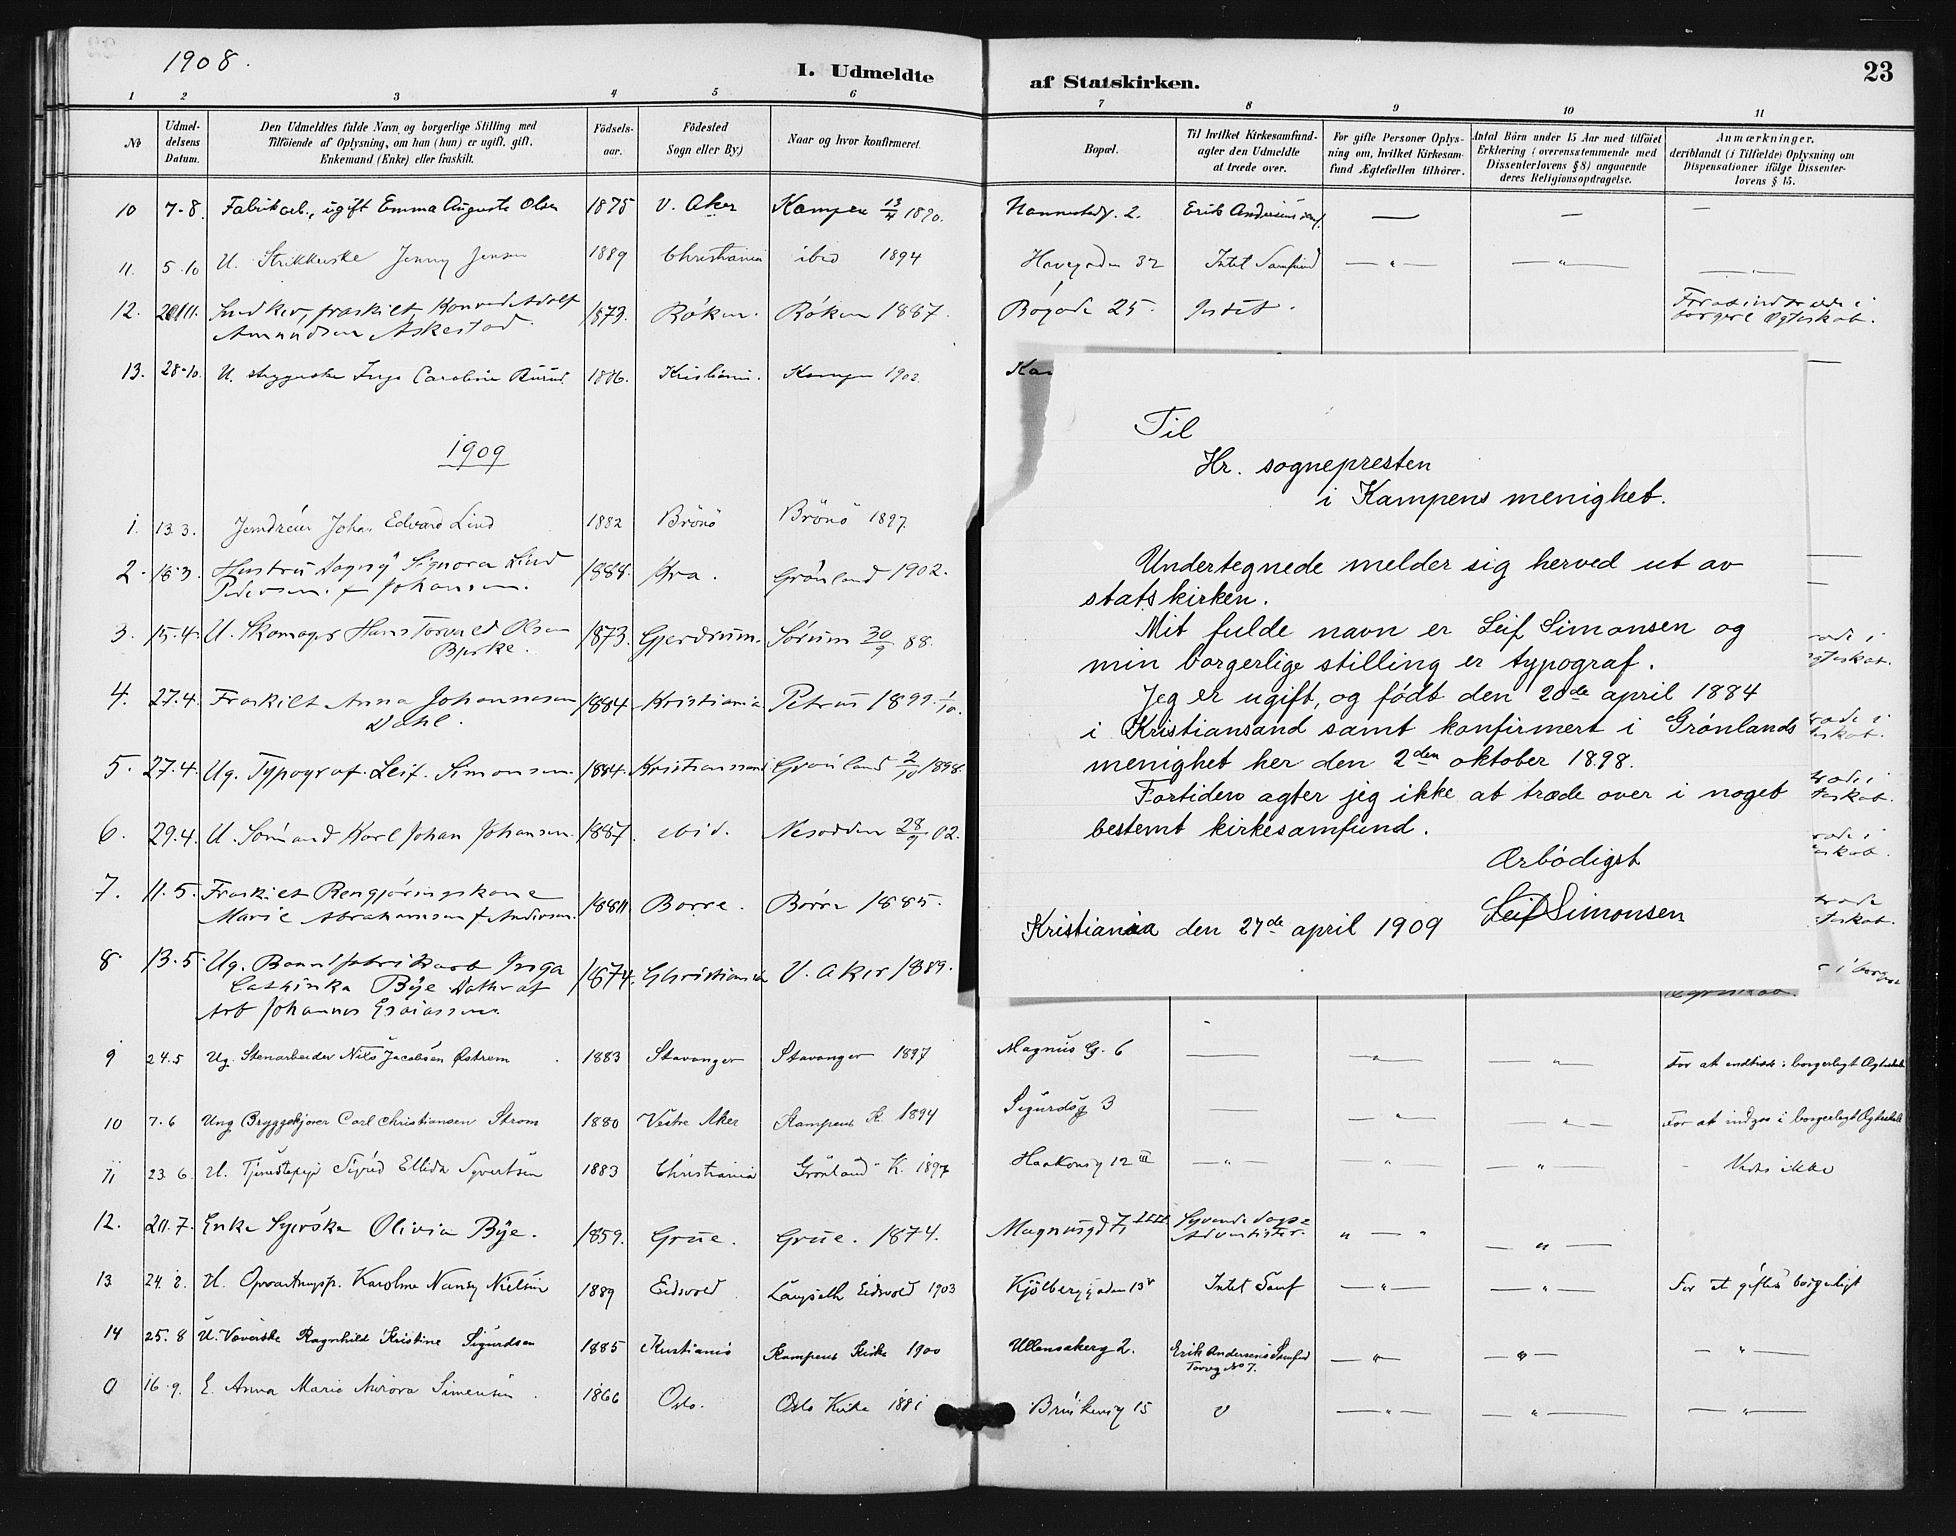 1908.
I. Udmeldte
af Statskirken.
23
1 2 3 4 5 6 7 8 9 10 11
No
Udmel-
delsens
Datum.
Den Udmeldtes fulde Navn og borgerlige Stilling med
Tilföiende af Oplysning, om han (hun) er ugift, gift,
Enkemand (Enke) eller fraskilt.
Födsels-
aar.
Födested
Sogn eller By.)
Naar og hvor konfirmeret
Bopæl.
Til hvilket Kirkesamfund-
agter den Udmeldte
at træde over.
For gifte Personer Oplys-
ning om, hvilket Kirkesam-
fund Ægtefællen tilhörer.
Antal Börn under 15 Aar med tilföiet
Erklæring (overensstemmende med
Dissenterlovens § 8) angaaende
deres Religionsopdragelse.
Anmærkninger,
deriblandt (i Tilfælde) Oplysning om
Dispensationer ifölge Dissenter-
lovens § 15.
10 7-8. Fabrikarb., ugift Emma Auguste Olsen 1875 V. Aker Kampen 1890. 2. —
11. 5-10 U. Strikkerske Jenny Jensen 1889 Christiania ibid 1894 Havegaden 32 Intet Samfund — " — — " —
12. Snedker, fraskilt Konrad Adolf 1873. Röken. Röken 1887. Bögade 25. Intet. For at indtræde i
Amundsen Askestad borgerl Ægteskab.
13. 28-10. U. Inga Caroline 1886. Kristiania. Kampen 1902.
1909
1. 13.3. Johan Edvard Lind 1882 Brönö Brönö 1897.
2. 16.3. Hustru Dagny Signora Lind 1888. Kra. Grönland 1902.
Pedersen. f. Johansen.
3. 15.4. U. Skomager Hans Torvald Olsen 1873. Gjerdrum. Sörum 30/9 88.
Bjerke.
4. 27.4. Fraskilt Anna Johannesen 1884 Kristiania Petrus 1899 1/10.
Dahl.
5. 27.4. Ug. Typograf Leif Simonsen. 1884. Kristianssand Grönland 2/10 1898.
6. 29.4. U. Sömand Karl Johan Johansen. 1887. ibid. Nesodden 28/9 02.
7. 11.5. Fraskilt Rengjöringskone Borre. Borre 1885.
Marie Abrahamsen f. Andersen.
8. 13.5. Ug. Inga 1874. Christiania V. Aker 1889.
Cathinka Bye Datter af
Arb Johannes
Til
Hr. sognepresten
i Kampens menighet.
Undertegnede melder sig herved ut av
statskirken.
Mit fulde navn er Leif Simonsen og
min borgerlige stilling er typograf.
Jeg er ugift, og födt den 20de april 1884
i Kristiansand samt konfirmert i Grönlands
menighet her den 2den oktober 1898.
Fortiden agter jeg ikke at træde over i noget
bestemt kirkesamfund.
Ærbödigst
Leif Simonsen
Kristiania den 27de april 1909
9 24.5 Ug. Stenarbeider Nils Jacobsen Østrem 1883 Stavanger Stavanger 1897 Magnus G. 6 — — " — — " — For at indtræde i borgerligt Ægteskab
10 7.6 Ung Bryggekjører Carl Christiansen Strøm 1880 Vestre Aker Kampens K. 1894 Sigurdsg 3 — — " — — " — For at indgaa i borgerligt Ægteskab
11 23.6. U. Tjenestepige Sigrid Ellida Syvertsen 1883 Christiania Grönland K. 1897 Haakonsg 12 III — " — — " — — " — Vides ikke
12. 7. Enke Syerske Olivia Bye. 1859. Grue. Grue. 1874. Magnusgd 7 IIII Syvende Dags " — " — " —
Adventister.
13 24. 8. U. Karoline Nancy Nielsen 1889 Eidsvold Langseth Eidsvold 1903 Kjölberggaden 13 Intet Samf — " — — " — For at giftes borgerligt
14 25.8 U. Væverske Ragnhild Kristine Sigurdsen 1885 Kristiania Kampens Kirke 1900 Ullensakerg 2. Erik Andersens Samfund — " — — " — — " —
Torvg No 7.
0 16.9. E. Anna Marie Aurora Simensen 1866 Oslo. Oslo Kirke 1881 15 — " — — " — — " —